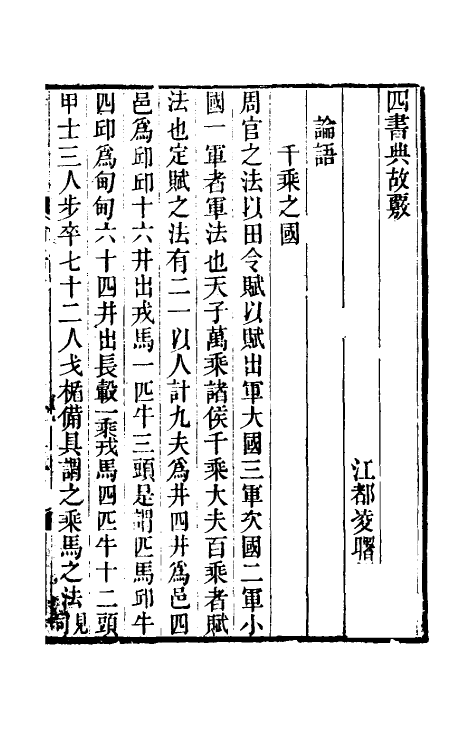 四書典故覈
江都凌曙
論語
千乘之國
周官之法以田令賦以賦出軍大國三軍次國二軍小
國一軍者軍法也天子萬乘諸侯千乘大夫百乘者賦
法也定賦之法有二一以人計九夫爲井四井爲邑四
邑爲邱邱十六井出戎馬一匹牛三頭是謂匹馬邱牛
四邱爲甸甸六十四井出長轂一乘戎馬四匹牛十二頭
甲士三人步卒七十二人戈楯備具謂之乘馬之法見司